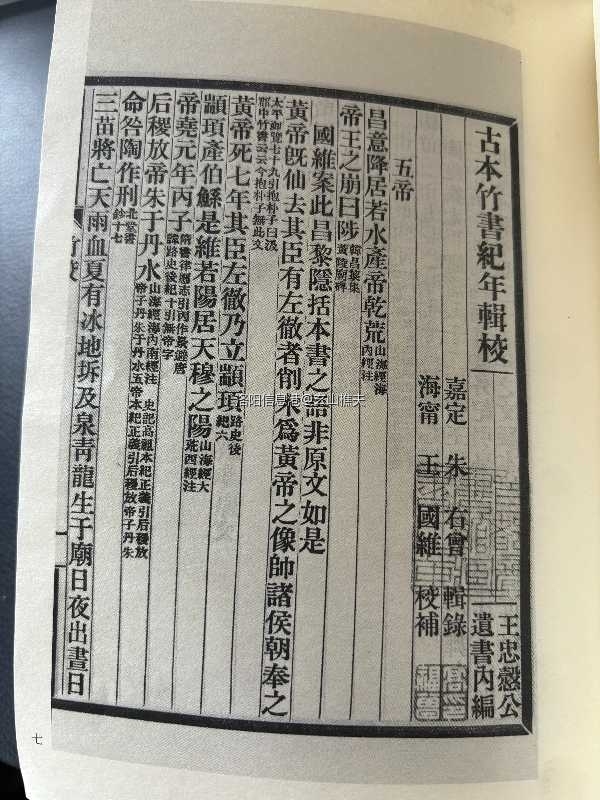 古本竹書紀年輯校
王忠愨公
遺書內編
嘉定 朱 右曾 輯錄
海甯 王 國維 校補
五帝
昌意降居若水產帝乾荒山海經海內經注
帝王之崩曰陟韓昌黎集黃陵廟碑
國維案此昌黎隱括本書之語非原文如是
黃帝旣仙去其臣有左徹者削木爲黃帝之像帥諸侯朝奉之
太平御覽七十九引抱朴子曰汲郡中竹書云云今抱朴子無此文
黃帝死七年其臣左徹乃立顓頊路史後紀六
顓頊產伯鯀是維若陽居天穆之陽山海經大荒西經注
帝堯元年丙子隋書律厤志引丙作景避唐諱路史後紀十引無帝字
后稷放帝朱于丹水山海經海內南經注 史記高祖本紀正義引后稷放帝子丹朱于丹水五帝本紀正義引后稷放帝子丹朱
命咎陶作刑北堂書鈔十七
三苗將亡天雨血夏有冰地坼及泉青龍生于廟日夜出晝日
七
洛阳信息港@玄山樵夫